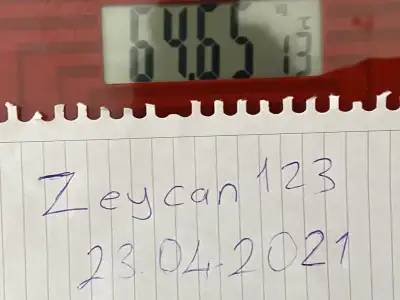 64.65
13
Zeycan123
23.04.2021